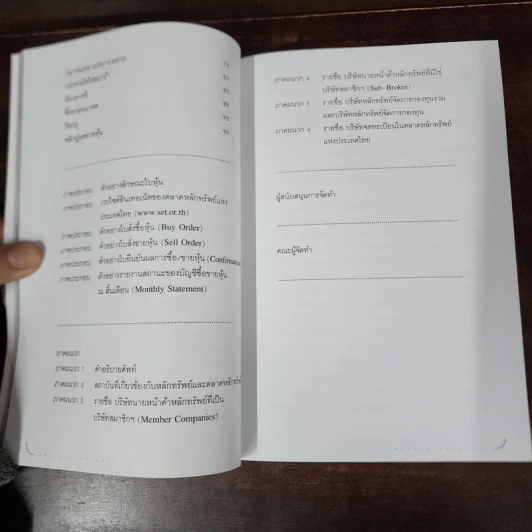 79
83
85
89
95
98
ภาพประกอบ ตัวอย่างลักษณะใบหุ้น
ภาพประกอบ เวบไซต์อินเทอเน็ตของตลาดหลักทรัพย์แห่ง
ประเทศไทย (www.set.or.th)
ภาพประกอบ ตัวอย่างใบสั่งซื้อหุ้น (Buy Order)
ภาพประกอบ ตัวอย่างใบสั่งขายหุ้น (Sell Order)
ภาพประกอบ ตัวอย่างใบยืนยันผลการซื้อ/ขายหุ้น
ภาพประกอบ ตัวอย่างรายงานสถานะของบัญชีซื้อขายหุ้น
ณ สิ้นเดือน (Monthly Statement)
ภาคผนวก
ภาคผนวก 1 คำอธิบายศัพท์
ภาคผนวก 2 สถาบันที่เกี่ยวข้องกับหลักทรัพย์และตลาดหลักทรัพย์
ภาคผนวก 3 รายชื่อ บริษัทนายหน้าค้าหลักทรัพย์ที่เป็น
บริษัทสมาชิกฯ (Member Companies)
ภาคผนวก 4 รายชื่อ บริษัทนายหน้าค้าหลักทรัพย์ที่มิใช่
บริษัทสมาชิกฯ (Sub-Broker)
ภาคผนวก 5 รายชื่อ บริษัทหลักทรัพย์จัดการกองทุนรวม
และบริษัทหลักทรัพย์จัดการกองทุน
ภาคผนวก 6 รายชื่อ บริษัทจดทะเบียนในตลาดหลักทรัพย์
แห่งประเทศไทย
ผู้สนับสนุนการจัดทำ
คณะผู้จัดทำ